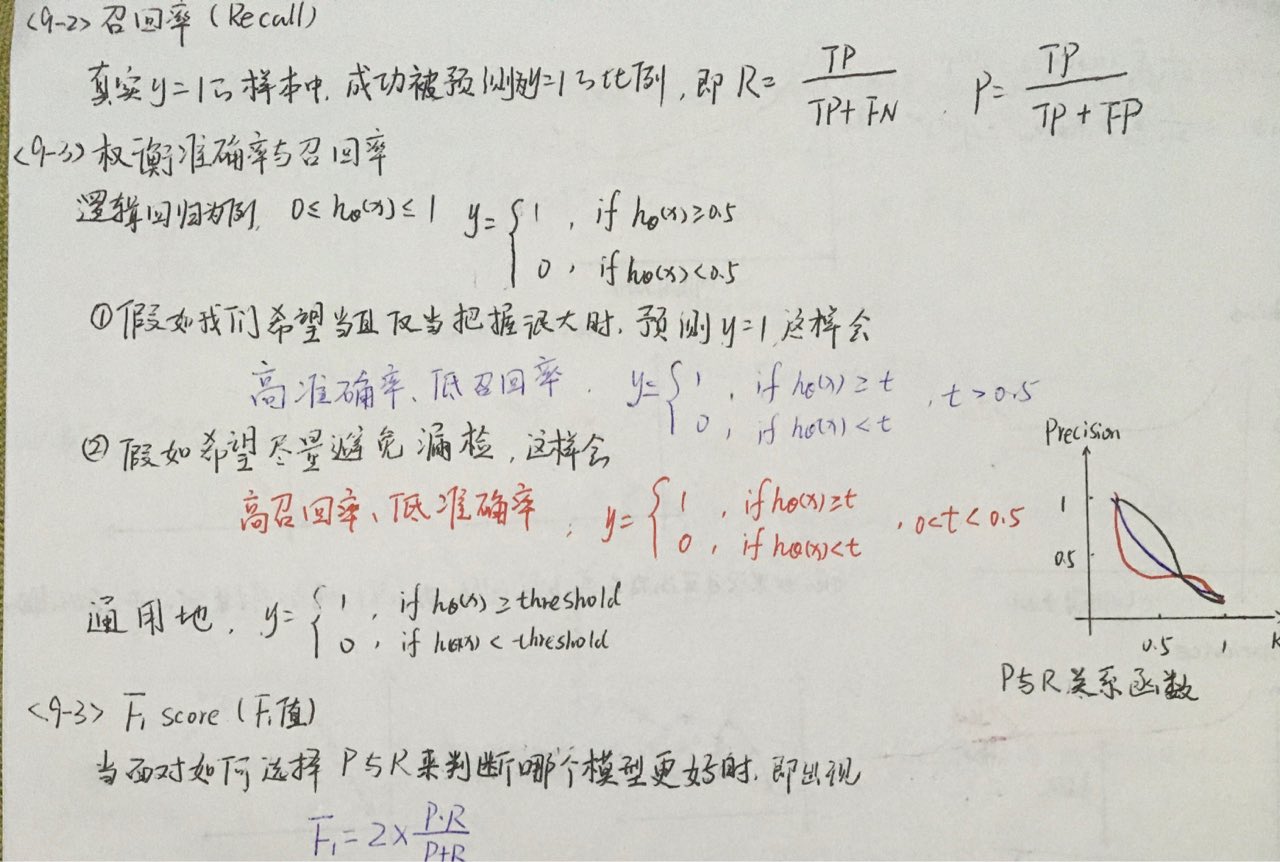 <9-2> 召回率 (Recall)
真实y=1的样本中,成功被预测为y=1的比例,即 R= TP/(TP+FN) , P= TP/(TP+FP)
<9-3> 权衡准确率与召回率
逻辑回归为例, 0≤hθ(x)≤1 y={1 , if hθ(x)≥0.5
0 , if hθ(x)<0.5
①假如我们希望当且仅当把握很大时,预测y=1,这样会
高准确率、低召回率. y={1 , if hθ(x)≥t
0 , if hθ(x)<t , t>0.5
②假如希望尽量避免漏检,这样会
高召回率、低准确率 ; y={1 , if hθ(x)≥t
0 , if hθ(x)<t , 0<t<0.5
通用地, y={1 , if hθ(x)≥threshold
0 , if hθ(x)<threshold
Precision
1
0.5
0.5 1
P与R关系函数
<9-3> F₁ score (F₁值)
当面对如何选择 P与R来判断哪个模型更好时,即出现
F₁=2×P·R/(P+R)